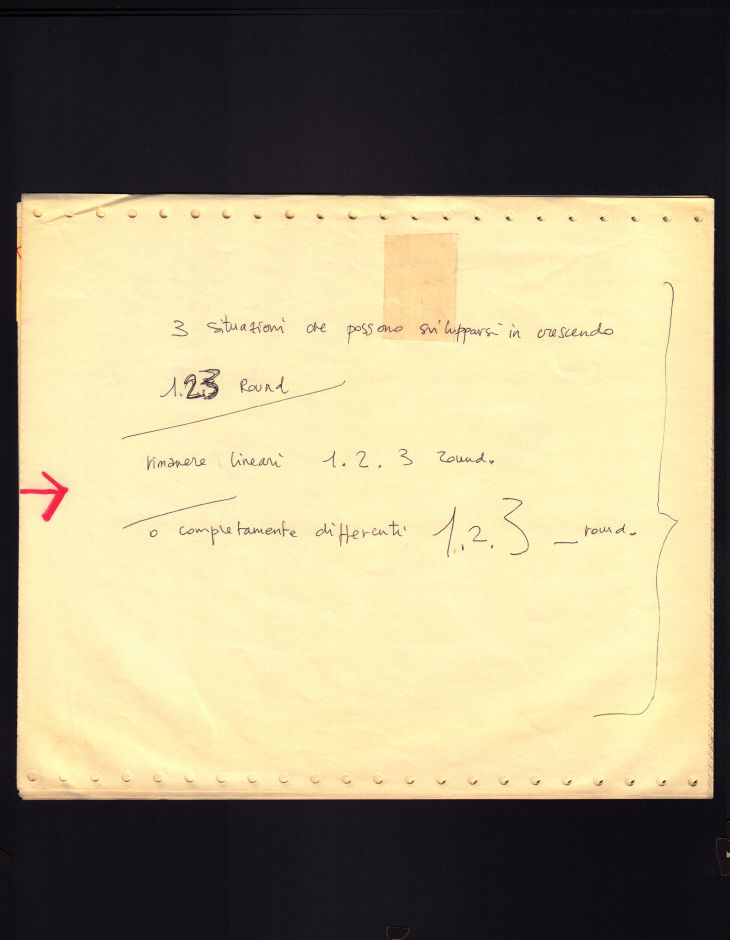 3 situazioni che possono svilupparsi in crescendo
1.23 Round
rimanere lineari 1. 2. 3 round.
o completamente differenti 1.2.3 _ round.